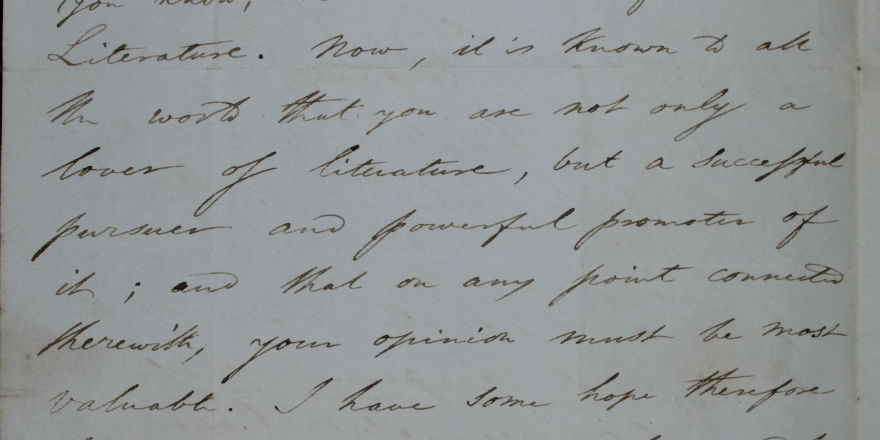 you know,
Literature. Now, it is known to all
the world that you are not only a
lover of literature, but a successful
pursuer and powerful promoter of
it; and that on any point connected
therewith, your opinion must be most
valuable. I have some hope therefore